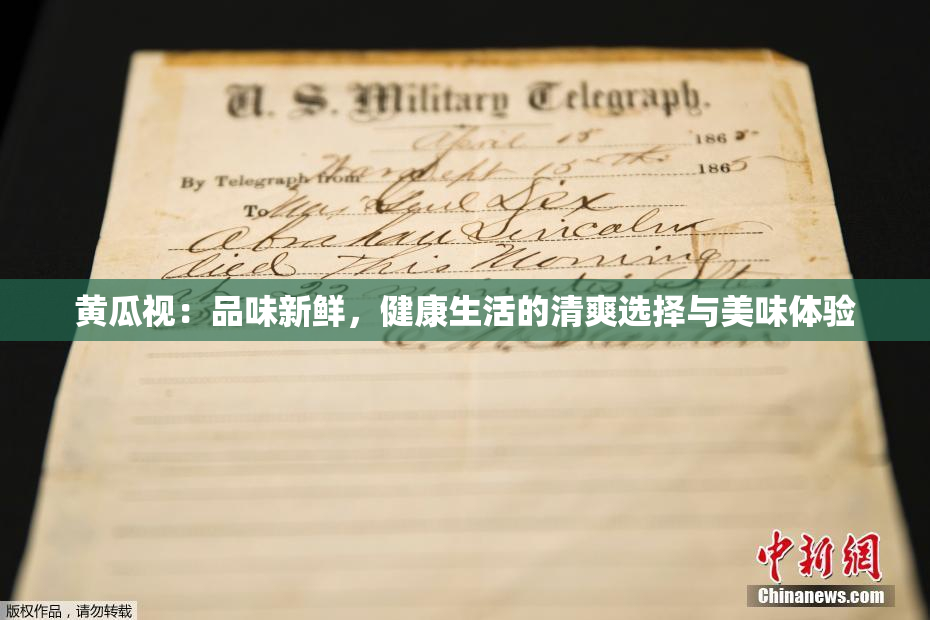 U. S. Military Telegraph.
April 15 1865
By Telegraph from War Dept 15th 1865
To Maj Genl Dix
Abraham Lincoln
died This Morning
22 minutes after
黄瓜视：品味新鲜，健康生活的清爽选择与美味体验
Stanton
中新网
Chinanews.com
版权作品，请勿转载